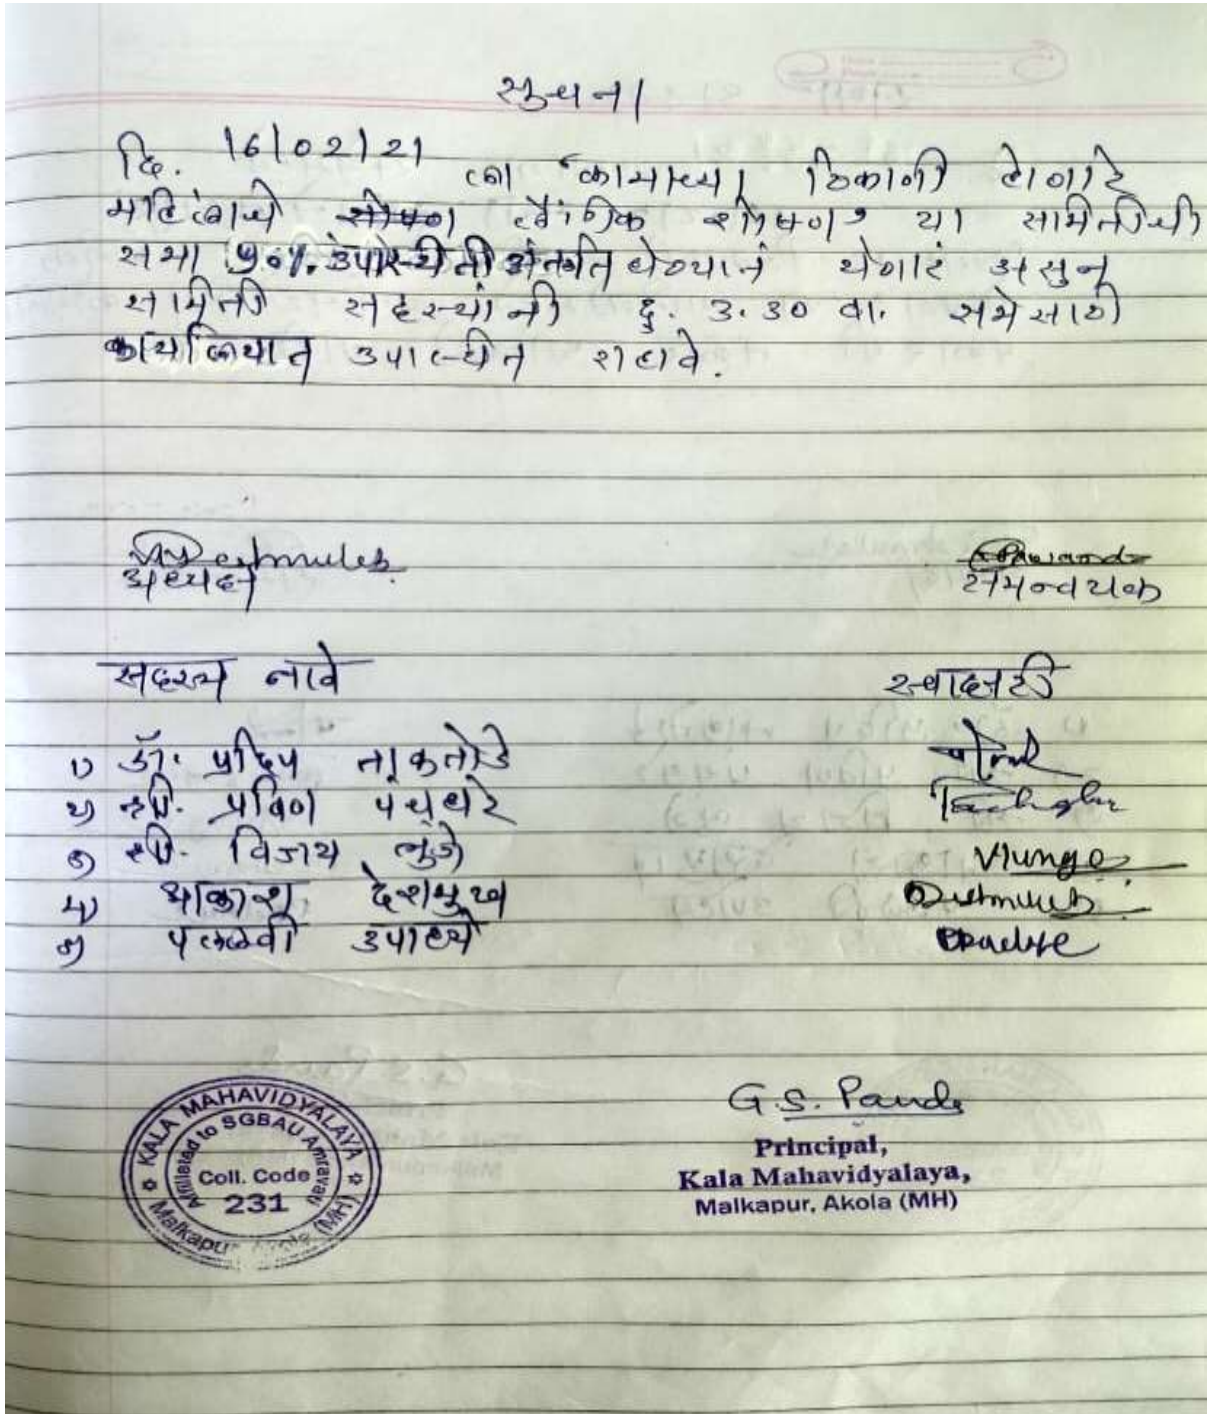 सुचना
दि. 16/02/21 ला "कामाच्या ठिकाणी होणारे
महिलांचे शोषण लैंगिक शोषण" या समितीची
सभा 50% उपस्थिती अंतर्गत घेण्यात येणार असुन
समिती सदस्यांनी दु. 3.30 वा. सभेसाठी
कार्यालयात उपस्थीत राहावे.
Deshmukh
अध्यक्ष समन्वयक
सदस्य नावे स्वाक्षरी
१) डॉ. प्रदिप ताकतोडे
२) श्री. प्रविण पंचधरे
३) श्री. विजय मुंजे
४) आकाश देशमुख Deshmukh
५) पल्लवी उपाध्ये
KALA MAHAVIDYALAYA
Affiliated to SGBAU Amravati
Coll. Code
231
Malkapur, Akola (MH)
G.S. Pande
Principal,
Kala Mahavidyalaya,
Malkapur, Akola (MH)